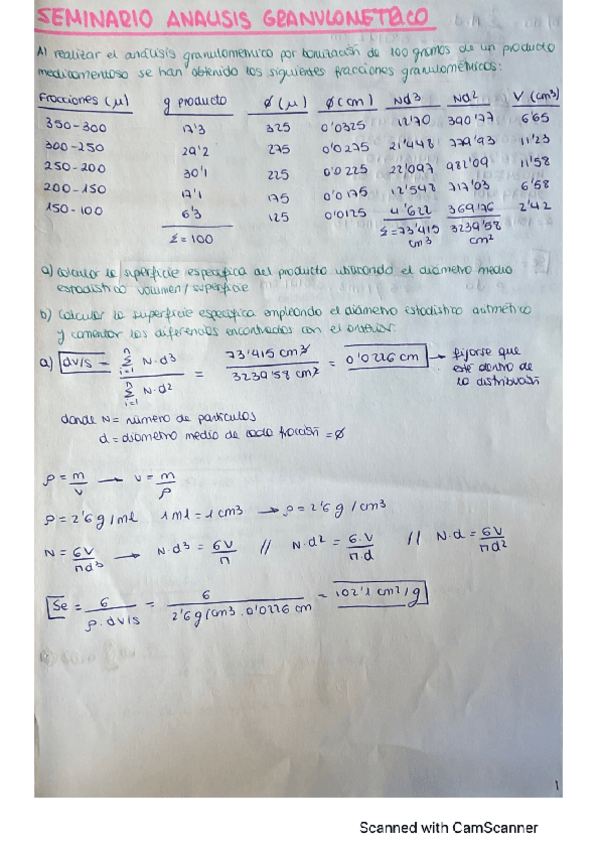 SEMINARIO ANALISIS GRANULOMETRICO
Al realizar el análisis granulométrico por tamización de 100 gramos de un producto
medicamentoso se han obtenido las siguientes fracciones granulométricas:
Fracciones (μ) g producto Ø (μ) Ø (cm) Nd3 Nd2 V (cm3)
350-300 17'3 325 0'0325 12'70 390'77 6'65
300-250 29'2 275 0'0275 21'448 779'93 11'23
250-200 30'1 225 0'0225 22'097 982'09 11'58
200-150 17'1 175 0'0175 12'548 717'03 6'58
150-100 6'3 125 0'0125 4'622 369'76 2'42
Σ=100 Σ=73'415 cm3 3239'58 cm2
a) Calcular la superficie específica del producto utilizando el diámetro medio
estadístico volumen/superficie
b) Calcular la superficie específica empleando el diámetro estadístico aritmético
y comentar las diferencias encontradas con el anterior.
a) dv/s = Σ N·d3 / Σ N·d2 = 73'415 cm3 / 3239'58 cm2 = 0'0226 cm → fijarse que esté dentro de la distribución
n i=1 n i=1
donde N= número de partículas
d = diámetro medio de cada fracción = Ø
ρ = m/v → v = m/ρ
ρ = 2'6 g/ml 1 ml = 1 cm3 → ρ = 2'6 g/cm3
N = 6V/πd3 → N·d3 = 6V/π // N·d2 = 6·V/π·d // N·d = 6V/πd2
Se = 6/ρ·dv/s = 6/2'6 g/cm3·0'0226 cm = 102'1 cm2/g
1
Scanned with CamScanner